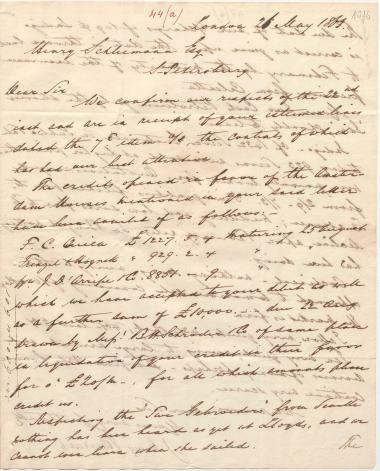 44(a)
1016
London 26 May 1855.
Henry Schliemann Esq
St Petersburg
Dear Sir
We confirm our respects of the 22nd
inst and are in receipt of your esteemed lines
dated the 7th item o/s the contents of which
has had our best attention
The credits opened in favor of the Amster
dam Houses mentioned in your said letter
have been availed of as follows:-
£ 1227. 5. 4 Maturing August
" 929. 2. 4 " "
J. D. & Co. 8854. - 9 "
which we have accepted to your debit as well
as a further sum of £10000.- due 22 Aug
drawn by Messrs B H Schröder & Co of same place
in liquidation of your credit in their favor
for £20/m, for all which amounts please
credit us.
Respecting the Two Gebroeders from
nothing has been heard as yet at Lloyds, and we
cannot even learn when she sailed.
The